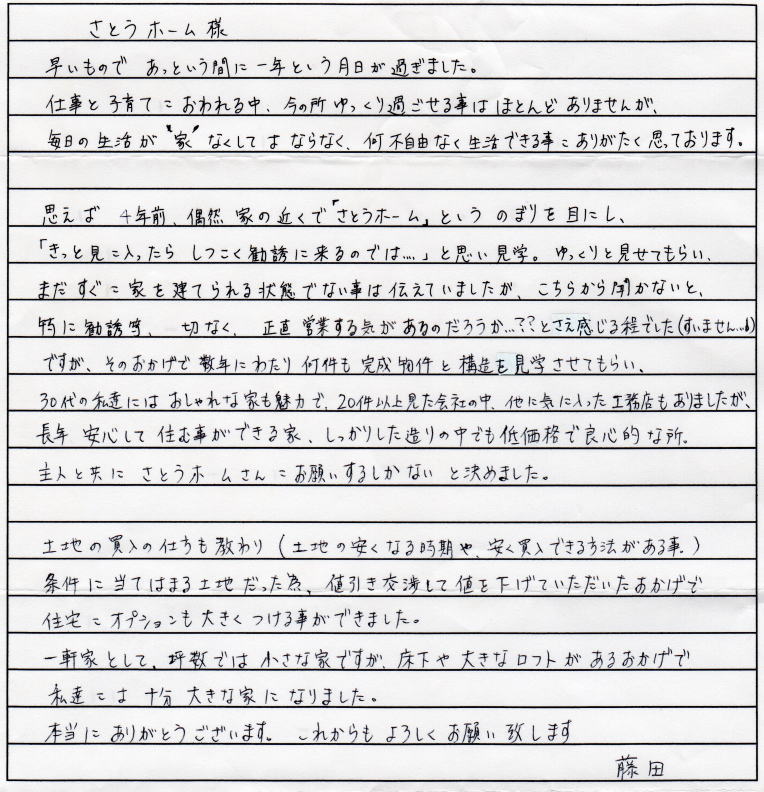 さとうホーム様
早いもので あっという間に一年という月日が過ぎました。
仕事と子育てにおわれる中、今の所ゆっくり過ごせる事はほとんどありませんが、
毎日の生活が"家"なくしてはならなく、何不自由なく生活できる事にありがたく思っております。
思えば 4年前、偶然 家の近くで「さとうホーム」という のぼりを目にし、
「きっと見に入ったら しつこく勧誘に来るのでは…」と思い見学。ゆっくりと見せてもらい、
まだすぐに家を建てられる状態でない事は伝えていましたが、こちらから聞かないと、
特に勧誘等、一切なく、正直営業する気があるのだろうか…??とさえ感じる程でした(すいません…。)
ですが、そのおかげで数年にわたり何件も完成物件と構造を見学させてもらい、
30代の私達にはおしゃれな家も魅力で、20件以上見た会社の中、他に気に入った工務店もありましたが、
長年 安心して住む事ができる家、しっかりした造りの中でも低価格で良心的な所。
主人と共に さとうホームさんにお願いするしかない と決めました。
土地の買入の仕方も教わり(土地の安くなる時期や、安く買入できる方法がある事。)
条件に当てはまる土地だった為、値引き交渉して値を下げていただいたおかげで
住宅にオプションも大きくつける事ができました。
一軒家として、坪数では小さな家ですが、床下や大きなロフトがあるおかげで
私達には十分大きな家になりました。
本当にありがとうございます。これからもよろしくお願い致します
藤田